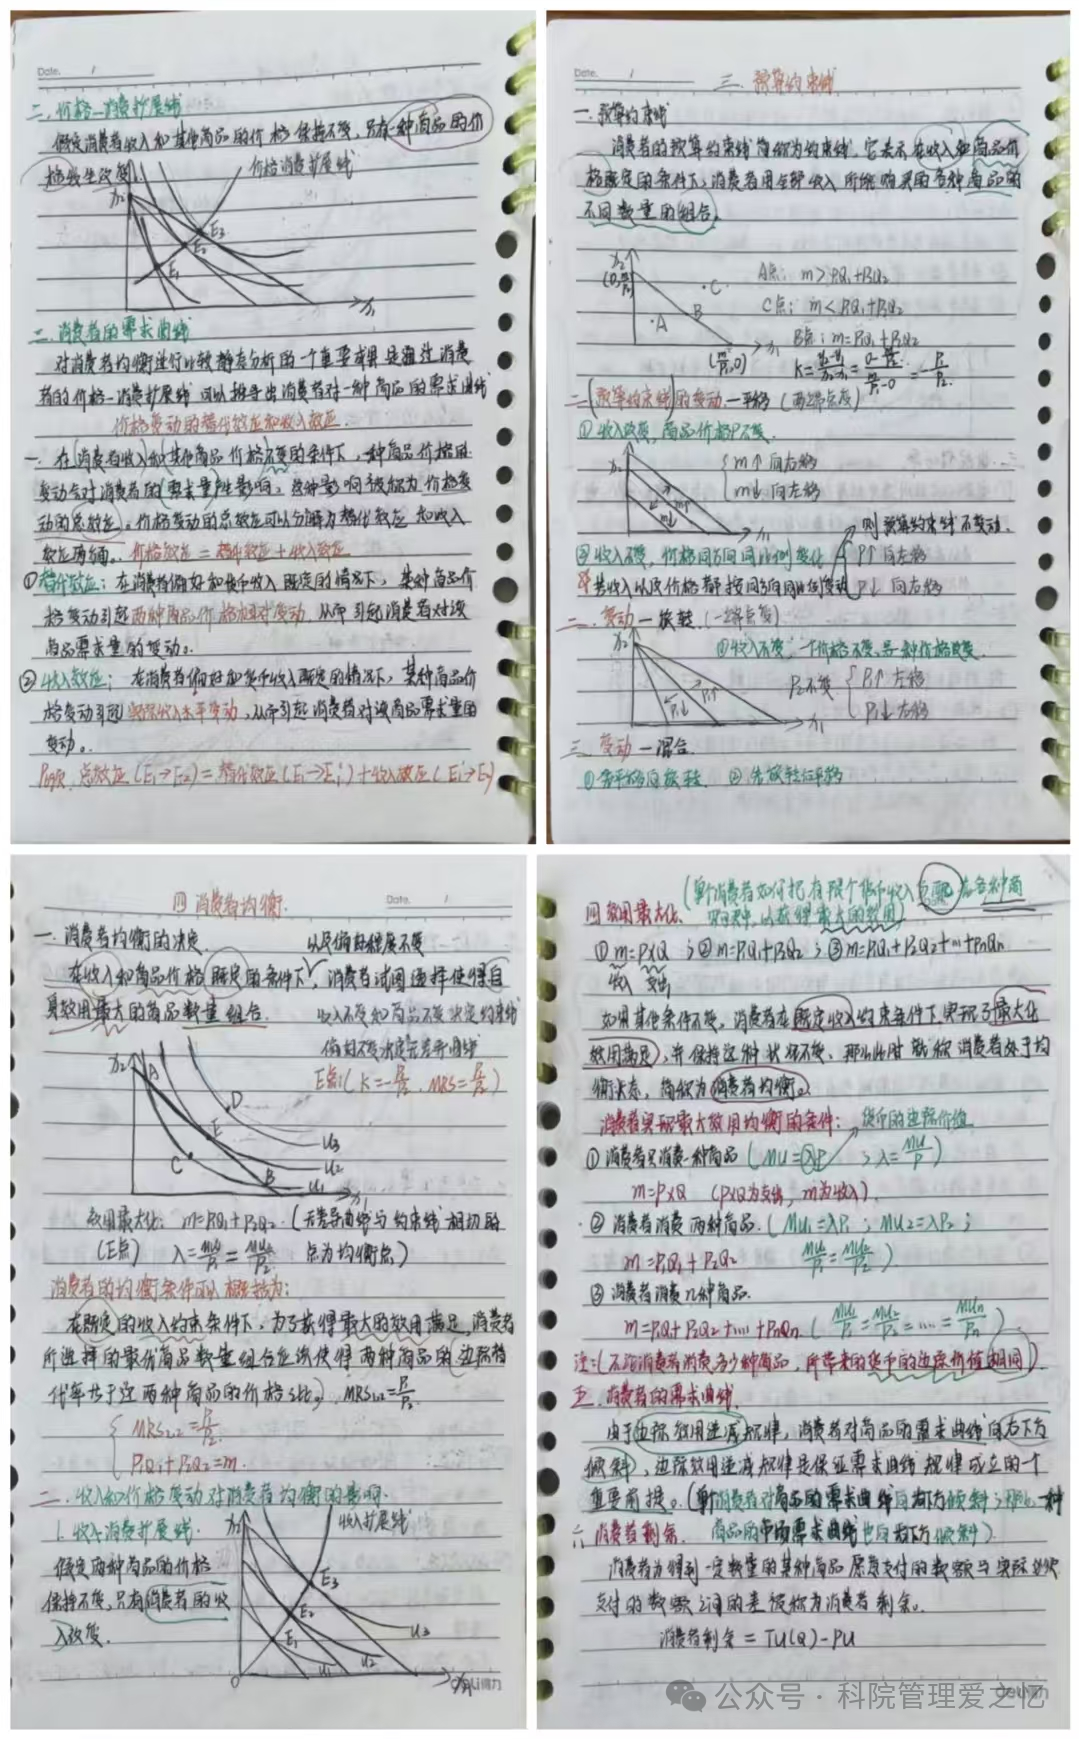 Date. 1
二.价格—消费扩展线
假定消费者收入和其他商品的价格保持不变,只有一种商品的价
格发生改变
价格消费扩展线
x₂
E₃
E₂
E₁
x₁
二.消费者的需求曲线
对消费者均衡进行比较静态分析的一个重要成果是通过消费
者的价格—消费扩展线可以推导出消费者对一种商品的需求曲线
价格变动的替代效应和收入效应.
一. 在(消费者收入)和(其他商品价格)不变的条件下,一种商品价格的
变动会对消费者的(需求量)产生影响,这种影响被称为价格变
动的总效应。价格变动的总效应可以分解为替代效应和收入
效应两个.价格效应=替代效应+收入效应
①替代效应:在消费者偏好和货币收入既定的情况下,某种商品价
格变动引起两种商品价格相对变动,从而引起消费者对该
商品需求量的变动。
②收入效应:在消费者偏好和货币收入既定的情况下,某种商品价
格变动引起实际收入水平变动,从而引起消费者对该商品需求量的
变动。
总效应(E₁→E₂)=替代效应(E₁→E₁')+收入效应(E₁'→E₂)
Date. 1
三.预算约束线
一.预算约束线
消费者的预算约束线简称为约束线,它表示在收入和商品价
格既定的条件下,消费者用全部收入所能购买的各种商品的
不同数量的组合。
x₂
C
A
B
x₁
A点: m>P₁Q₁+P₂Q₂
C点: m<P₁Q₁+P₂Q₂
B点: m=P₁Q₁+P₂Q₂
二.(预算约束线)的变动—平移(两端点变)
①收入改变,商品价格P不变.
x₂
m↑
m↓
x₁
m↑ 向右移
m↓ 向左移
则预算约束线不变动.
②收入不变,价格同方向同比例变化
P↑ 向左移
若收入以及价格都按同方向同比例变动
P↓ 向右移
二.变动—旋转(一端点变)
①收入不变,一个价格不变,另一种价格改变.
x₂
P₁↓
P₁↑
x₁
P₂不变
P₁↑ 左移
P₁↓ 右移
三.变动—混合.
①先平移后旋转 ②先旋转后平移
四 消费者均衡.
Date. 1
一.消费者均衡的决定
以及偏好程度不变
在收入和商品价格既定的条件下,消费者试图选择使得自
身效用最大的商品数量组合.
收入不变和商品不变决定约束线
偏好不变决定无差异曲线
E点:(K=-P₁/P₂, MRS=P₁/P₂)
x₂
A
D
E
C
B
U₃
U₂
U₁
x₁
效用最大化: m=P₁Q₁+P₂Q₂.(无差异曲线与约束线相切的
(E点) λ=MU₁/P₁=MU₂/P₂ 点为均衡点)
消费者的均衡条件可以概括为:
在既定的收入约束条件下,为了获得最大的效用满足,消费者
所选择的最优商品数量组合应该使得两种商品的边际替
代率等于这两种商品的价格之比。MRS₁,₂=P₁/P₂
MRS₁,₂=P₁/P₂
P₁Q₁+P₂Q₂=m.
二.收入和价格变动对消费者均衡的影响.
1.收入消费扩展线.
假定两种商品的价格
保持不变,只有消费者的收
入改变.
收入扩展线
x₂
E₃
E₂
E₁
U₃
U₂
U₁
O
deli得力
(单个消费者如何把有限个货币收入分配在各种商
四 效用最大化.
以获得最大的效用)
①m=P×Q ;②m=P₁Q₁+P₂Q₂;③m=P₁Q₁+P₂Q₂+…+PnQn
收入 支出
如用其他条件不变,消费者在既定收入约束条件下实现了最大化
效用满足,并保持这种状态不变,那么此时就称消费者处于均
衡状态,简称为消费者均衡。
消费者实现最大效用均衡的条件: 货币的边际价值
①消费者只消费一种商品(MU=λP ; λ=MU/P)
m=P×Q (P×Q为支出,m为收入).
②消费者消费两种商品.(MU₁=λP₁ ; MU₂=λP₂;
m=P₁Q₁+P₂Q₂ MU₁/P₁=MU₂/P₂)
③消费者消费n种商品.
m=P₁Q₁+P₂Q₂+…+PnQn.(MU₁/P₁=MU₂/P₂=…=MUn/Pn)
注:(不论消费者消费多少种商品,所带来的货币的边际价值相同)
五.消费者的需求曲线.
由于边际效用递减规律,消费者对商品的需求曲线向右下方
倾斜,边际效用递减规律是保证需求曲线规律成立的一个
重要前提。(单个消费者对商品的需求曲线向右下方倾斜,那么一种
六 消费者剩余. 商品的市场需求曲线也向右下方倾斜).
消费者为得到一定数量的某种商品愿意支付的数额与实际必须
支付的数额之间的差额称为消费者剩余。
消费者剩余=TU(Q)-PU
deli得力
公众号·科院管理爱之忆